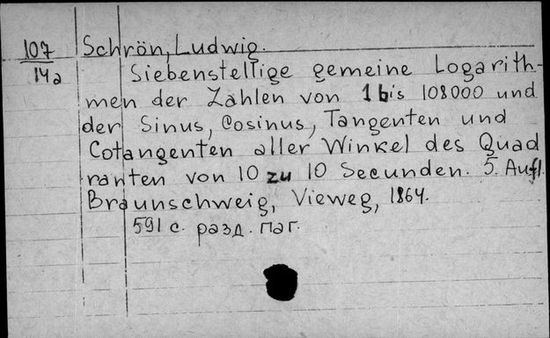 107 Schrön, Ludwig.
14a Siebenstellige gemeine Logarith-
men der Zahlen von 1 bis 108000 und
der Sinus, Cosinus, Tangenten und
Cotangenten aller Winkel des Quad
ranten von 10 zu 10 Secunden. 5. Aufl.
Braunschweig, Vieweg, 1864.
591 с. разд. паг.